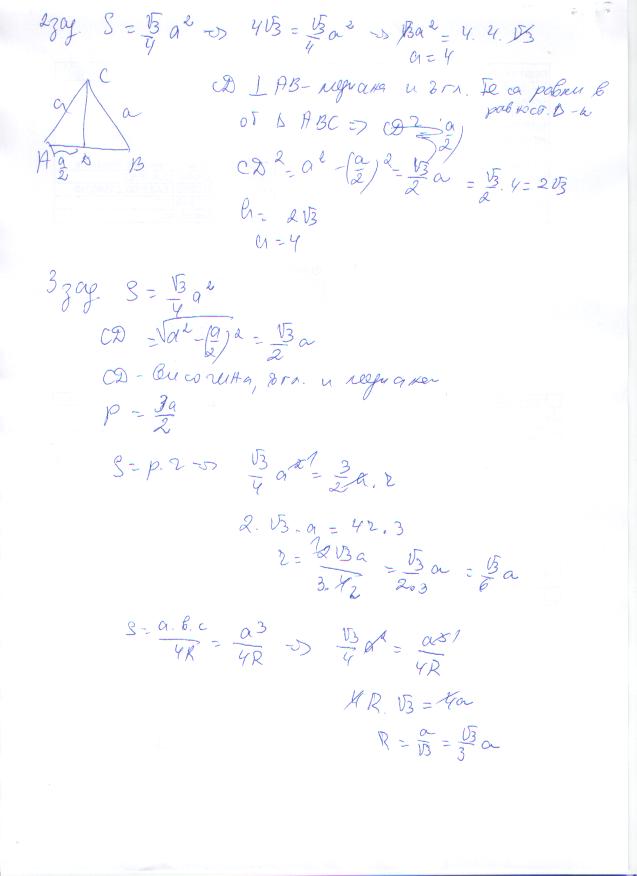 2 зад S = √3/4 a² => 4√3 = √3/4 a² => √3a² = 4.4.√3
a = 4
C
a a
A a/2 D B
CD ⊥ AB - медиана и ъгл. Те са равни в равност. Δ-к
от Δ ABC =>
CD² = a² - (a/2)² = √3/2 a = √3/2 . 4 = 2√3
h = 2√3
a = 4
3 зад. S = √3/4 a²
CD = √a² - (a/2)² = √3/2 a
CD - височина, ъгл. и медиана
p = 3a/2
S = p.r => √3/4 a² = 3/2 a . r
2.√3.a = 4r.3
r = 2√3a/3.4 = √3/2.3 a = √3/6 a
S = a.b.c/4R = a³/4R => √3/4 a² = a³/4R
4R.√3 = 4a
R = a/√3 = √3/3 a